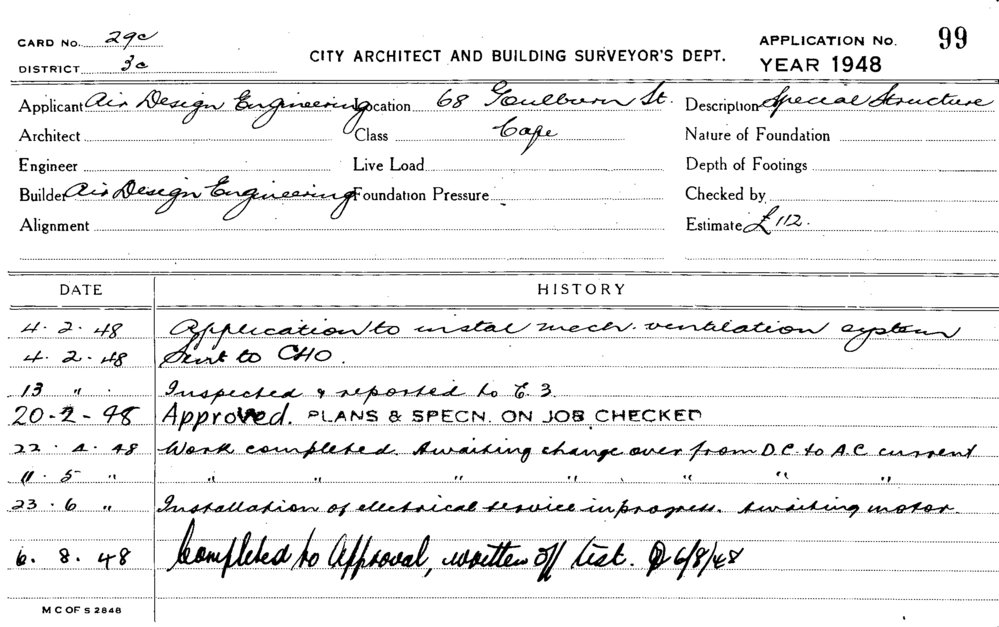 CARD No. 29c
DISTRICT 3c
CITY ARCHITECT AND BUILDING SURVEYOR'S DEPT.
APPLICATION No. 99
YEAR 1948
Applicant Air Design Engineering Location 68 Goulburn St. Description Special Structure
Architect Class Cafe Nature of Foundation
Engineer Live Load Depth of Footings
Builder Air Design Engineering Foundation Pressure Checked by
Alignment Estimate £112.
DATE HISTORY
4. 2. 48 Application to instal mech. ventilation system
4. 2. 48 Sent to CHO.
13 " . Inspected & reported to E. 3.
20-2-48 Approved. PLANS & SPECN. ON JOB CHECKED
22. 4. 48 Work completed. Awaiting change over from D.C. to A.C. current
11. 5 " " " " " " " "
23. 6 " Installation of electrical service in progress. Awaiting motor.
6. 8. 48 Completed to Approval, written off list. 6/8/48
M C OF S 2848